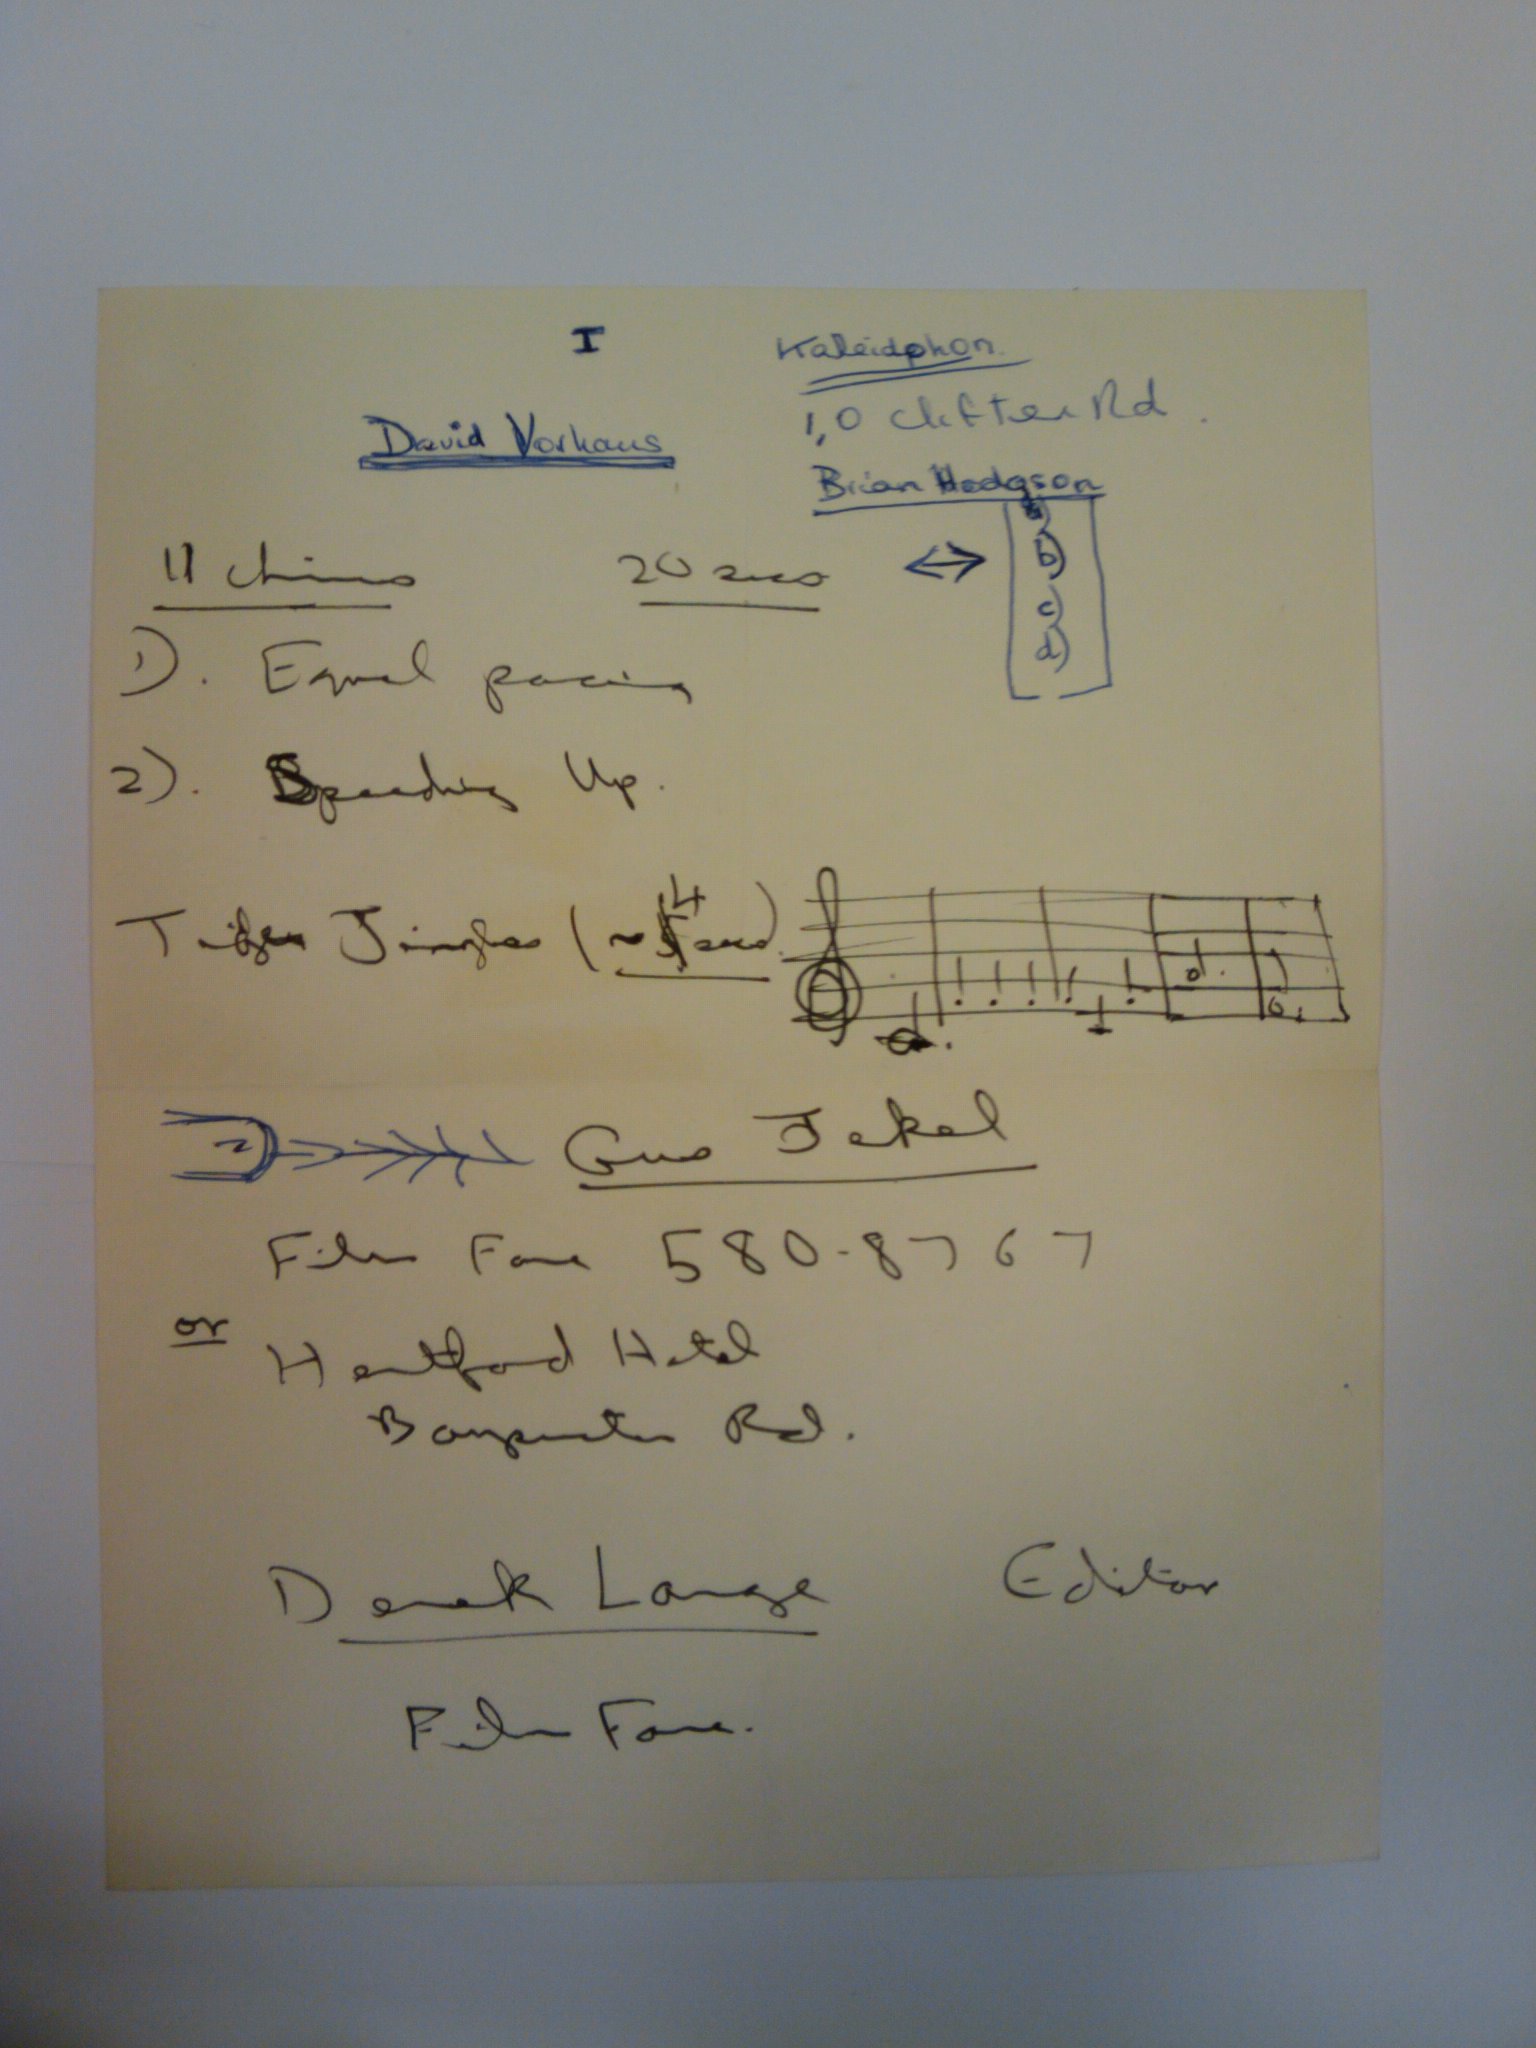 I
Kaleidophon.
1,0 Clifton Rd.
David Vorhaus
Brian Hodgson
11 chimes 20 secs ↔
b)
c)
d)
1). Equal pacing
2). Speeding Up.
Jingles (~4 secs)
2 Gus Jekel
Film Fare 580-8767
or Hertford Hotel
Rd.
Derek Lange Editor
Film Fare.